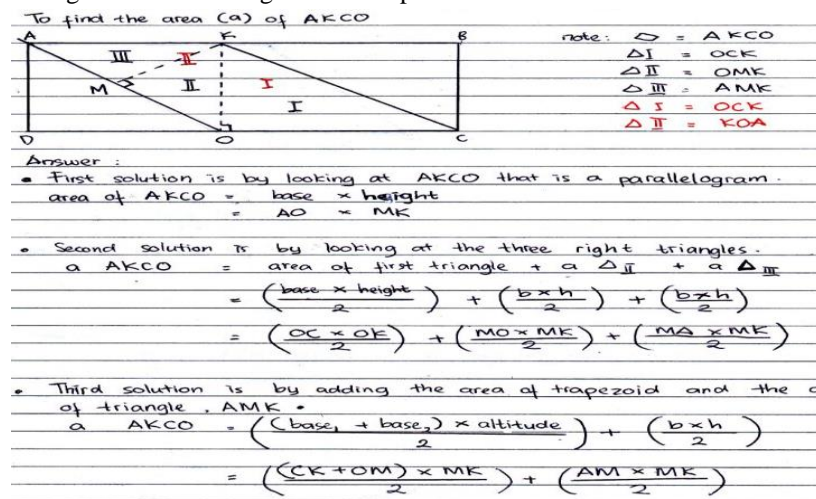 To find the area (a) of AKCO
A K B
III II
M II I
I
D O C
note: ▱ = AKCO
△I = OCK
△II = OMK
△III = AMK
△ I = OCK
△ II = KOA
Answer :
• First solution is by looking at AKCO that is a parallelogram.
area of AKCO = base × height
= AO × MK
• Second solution is by looking at the three right triangles.
a AKCO = area of first triangle + a △II + a △III
= (base × height / 2) + (b×h / 2) + (b×h / 2)
= (OC × OK / 2) + (MO × MK / 2) + (MA × MK / 2)
• Third solution is by adding the area of trapezoid and the
of triangle . AMK •
a AKCO = ((base₁ + base₂) × altitude / 2) + (b×h / 2)
= ((CK + OM) × MK / 2) + (AM × MK / 2)